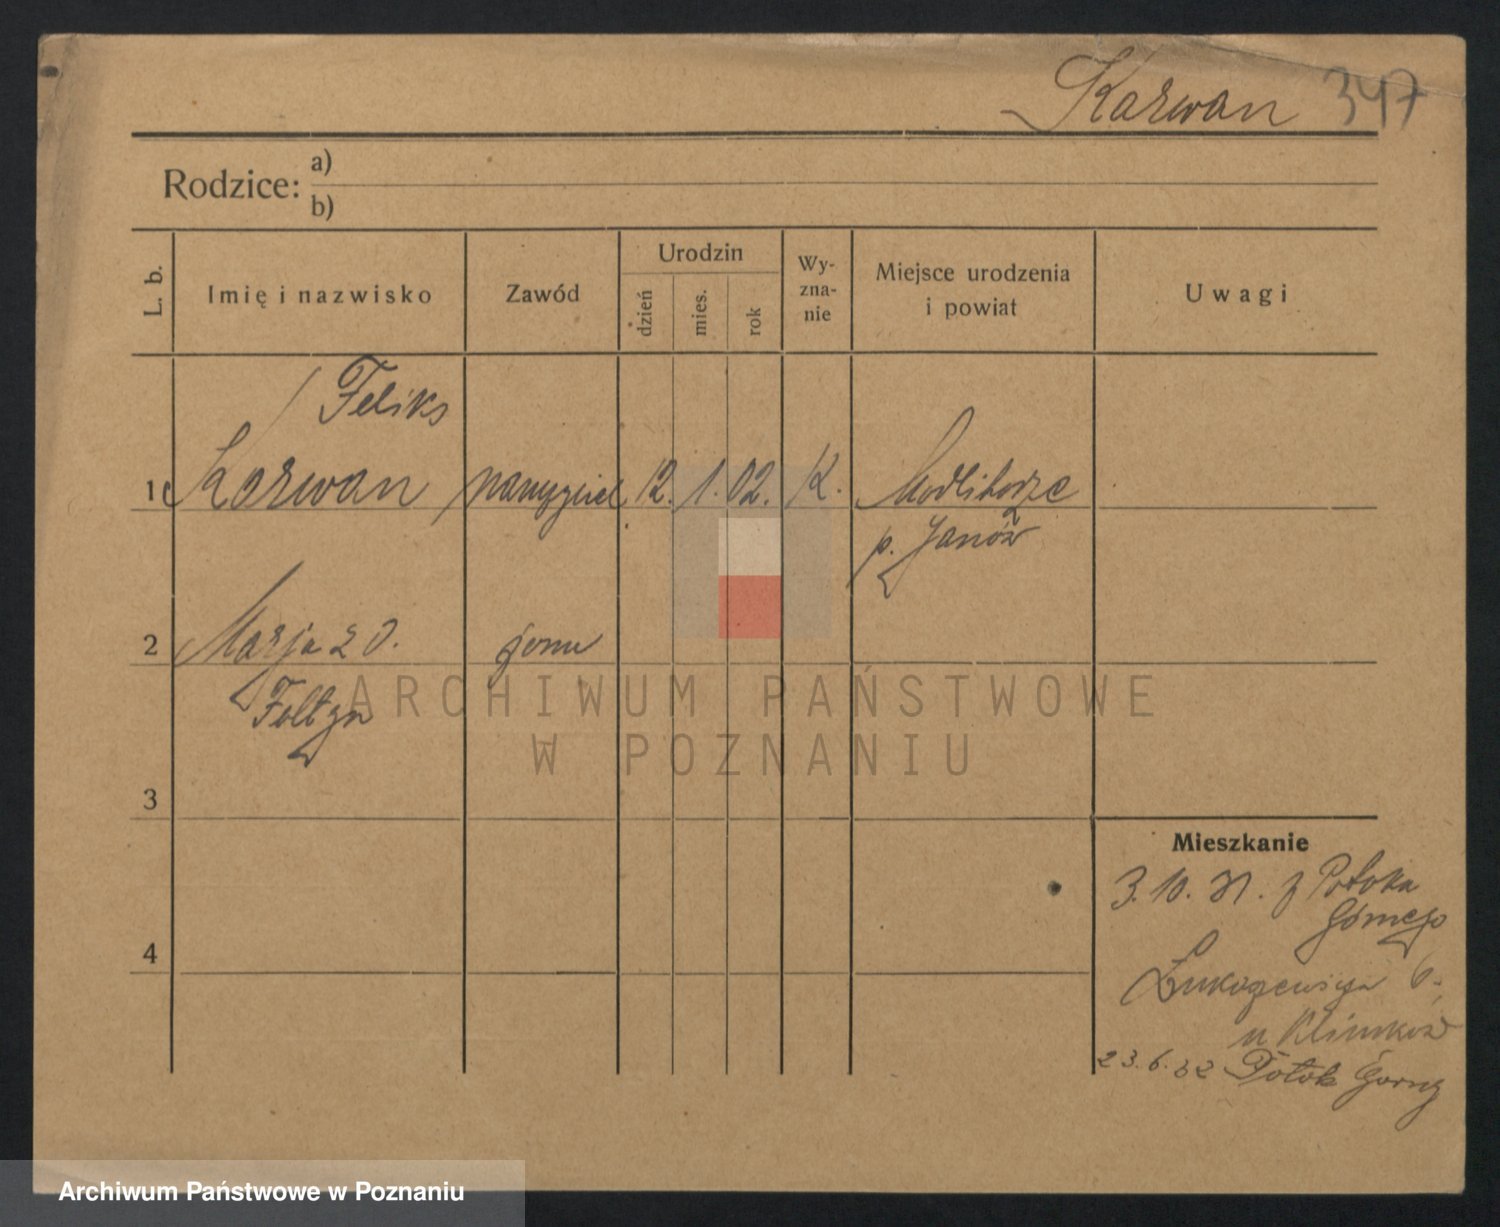 Karwan 347
Rodzice: a)
b)
L. b.
Imię i nazwisko
Zawód
Urodzin
dzień
mies.
rok
Wy-
zna-
nie
Miejsce urodzenia
i powiat
Uwagi
Feliks
1 Karwan nauczyciel 12. 1. 02. K. Modliborzc
p. Janów
2 Marja z D. żona
Fołtyn
3
4
Mieszkanie
3. 10. 31. z Potoka
Górnego
Łukaszewicza 6.
u Klimków
23.6.32 Potok Górny
ARCHIWUM PAŃSTWOWE
W POZNANIU
Archiwum Państwowe w Poznaniu